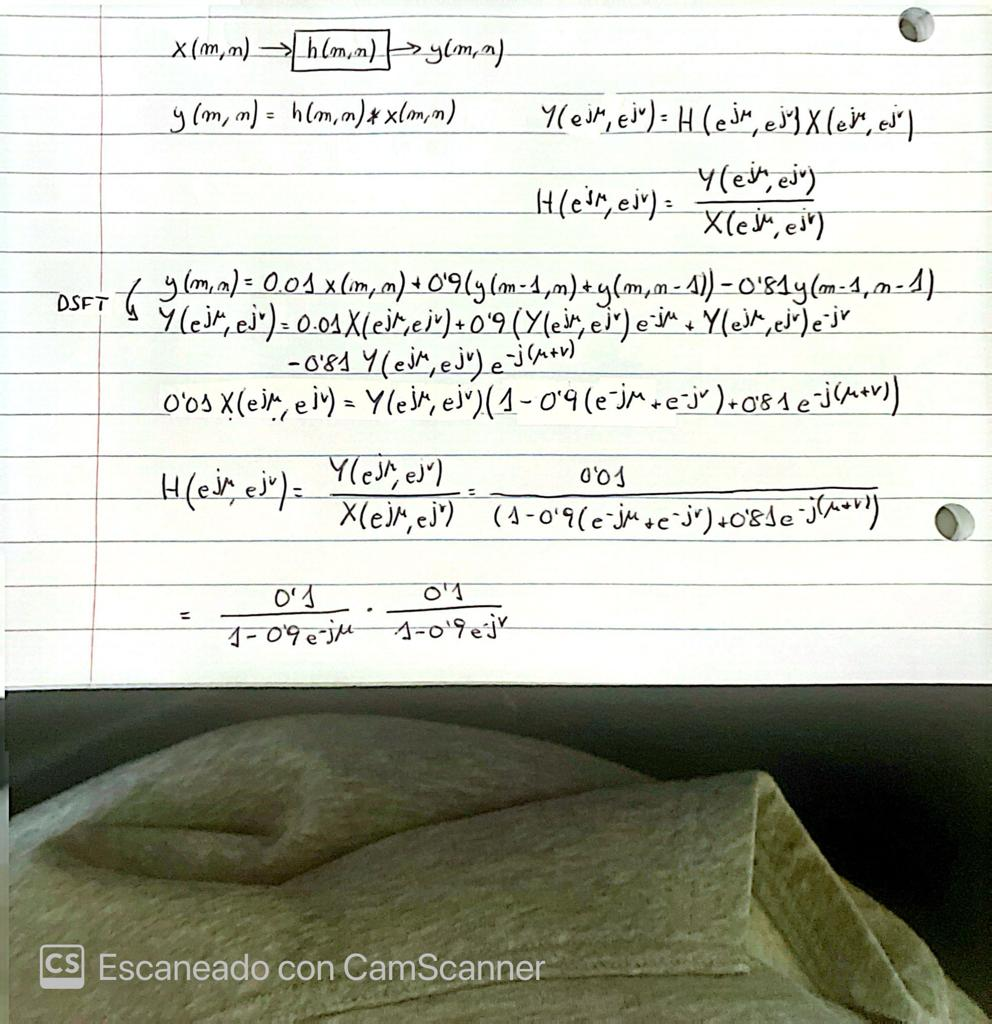 x(m,n) → h(m,n) → y(m,n)
y(m,n) = h(m,n) * x(m,n)    Y(e^jμ, e^jν) = H(e^jμ, e^jν) X(e^jμ, e^jν)
H(e^jμ, e^jν) = Y(e^jμ, e^jν) / X(e^jμ, e^jν)
y(m,n) = 0.01 x(m,n) + 0'9(y(m-1,n) + y(m,n-1)) - 0'81y(m-1,n-1)
DSFT
Y(e^jμ, e^jν) = 0.01 X(e^jμ, e^jν) + 0'9 (Y(e^jμ, e^jν) e^-jμ + Y(e^jμ, e^jν) e^-jν
-0'81 Y(e^jμ, e^jν) e^-j(μ+ν)
0'01 X(e^jμ, e^jν) = Y(e^jμ, e^jν) (1 - 0'9 (e^-jμ + e^-jν) + 0'81 e^-j(μ+ν))
H(e^jμ, e^jν) = Y(e^jμ, e^jν) / X(e^jμ, e^jν) = 0'01 / (1-0'9(e^-jμ + e^-jν) + 0'81e^-j(μ+ν))
= 0'1 / 1-0'9 e^-jμ · 0'1 / 1-0'9 e^-jν
CS Escaneado con CamScanner